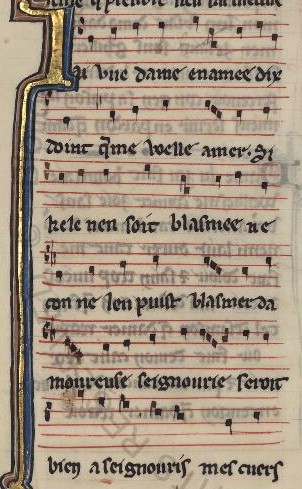 J'ai vne dame enamee dix
doint q̃me welle amer. Si
kele nen soit blasmee ne
con ne len puist blasmer da
moureuse seignourie seroit
bien a seignouris mes cuers